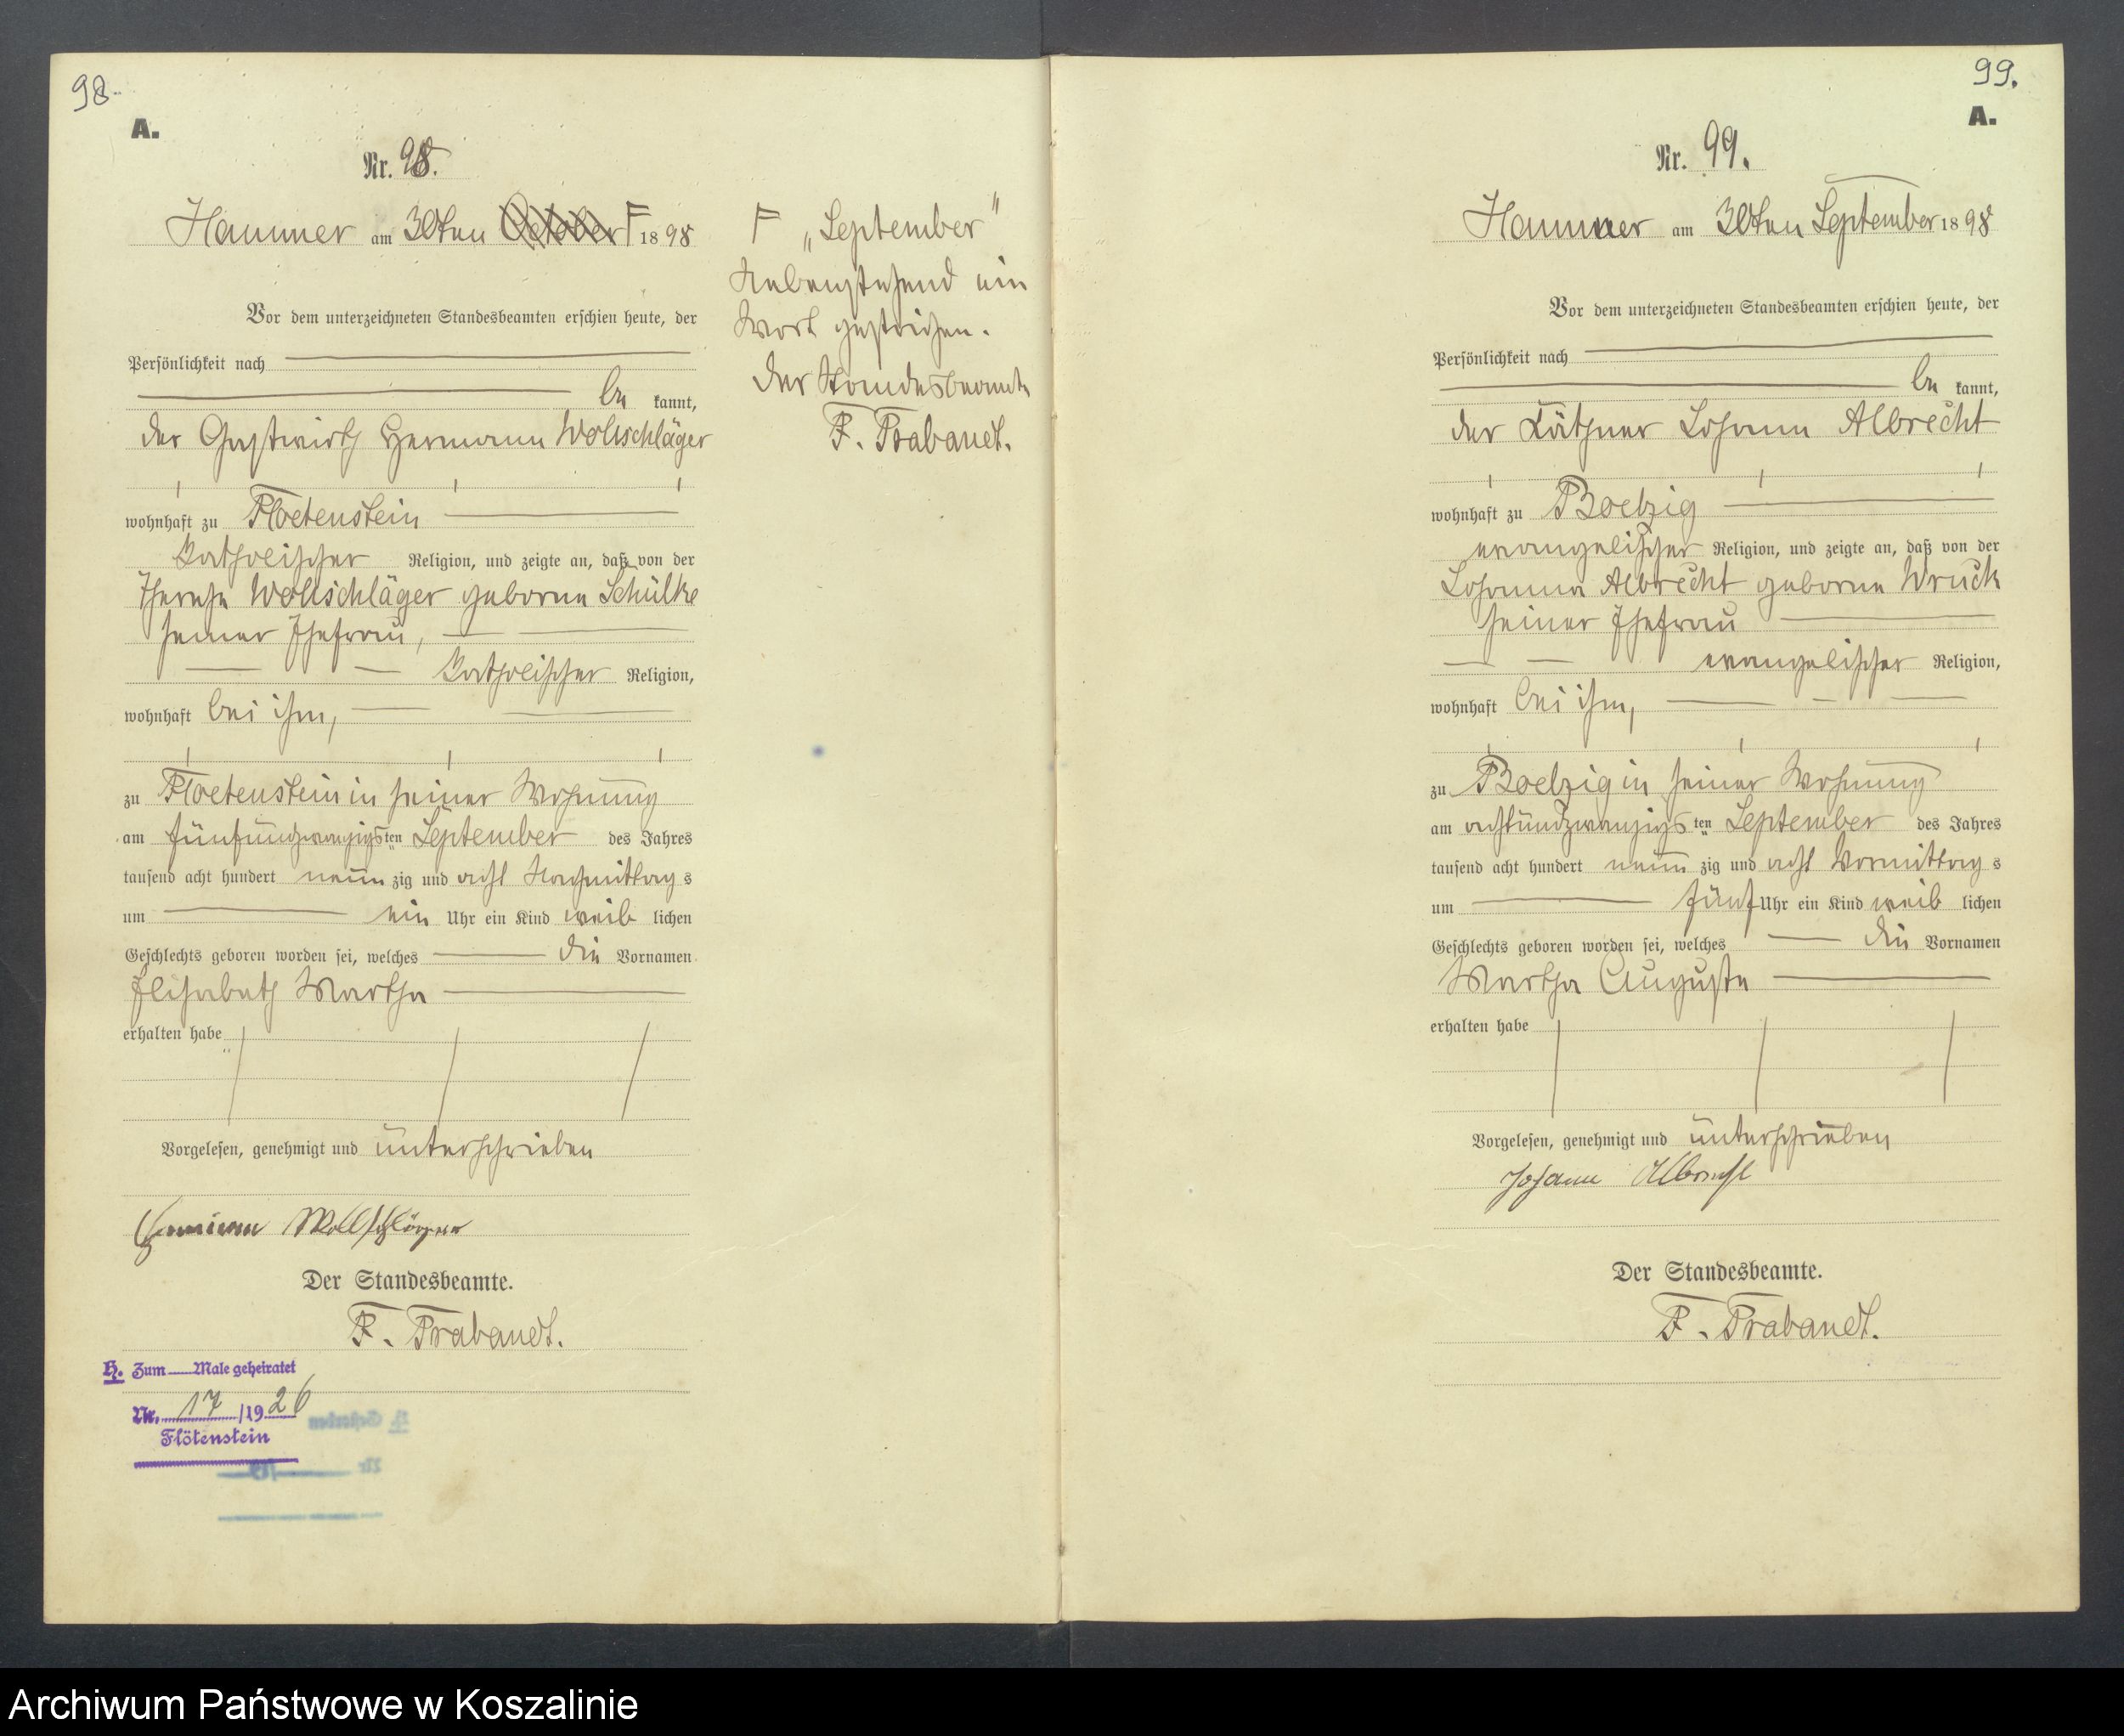 98.
A.
Nr. 98.
Hammer am 30ten October F 1898
Vor dem unterzeichneten Standesbeamten erschien heute, der
Persönlichkeit nach
be kannt,
der Gastwirth Hermann Wollschläger
wohnhaft zu Floetenstein
katholischer Religion, und zeigte an, daß von der
Therese Wollschläger geborne Schülke
seiner Ehefrau,
katholischer Religion,
wohnhaft bei ihm,
zu Floetenstein in seiner Wohnung
am fünfundzwanzigsten September des Jahres
tausend acht hundert neun zig und acht Nachmittags
um ein Uhr ein Kind weib lichen
Geschlechts geboren worden sei, welches die Vornamen
Elisabeth Martha
erhalten habe
Vorgelesen, genehmigt und unterschrieben
Hermann Wollschläger
Der Standesbeamte.
F. Trabandt.
H. Zum Male geheiratet
Nr. 17/1926
Flötenstein
H. Gestorben
Nr /19
F „September"
Nebenstehend ein
Wort gestrichen.
Der Standesbeamte
F. Trabandt.
99.
A.
Nr. 99.
Hammer am 30ten September 1898
Vor dem unterzeichneten Standesbeamten erschien heute, der
Persönlichkeit nach
be kannt,
der Käthner Johann Albrecht
wohnhaft zu Boelzig
evangelischer Religion, und zeigte an, daß von der
Johanna Albrecht geborne Wruck
seiner Ehefrau
evangelischer Religion,
wohnhaft bei ihm,
zu Boelzig in seiner Wohnung
am achtundzwanzigsten September des Jahres
tausend acht hundert neun zig und acht Vormittags
um fünf Uhr ein Kind weib lichen
Geschlechts geboren worden sei, welches die Vornamen
Martha Auguste
erhalten habe
Vorgelesen, genehmigt und unterschrieben
Johann Albrecht
Der Standesbeamte.
F. Trabandt.
Archiwum Państwowe w Koszalinie